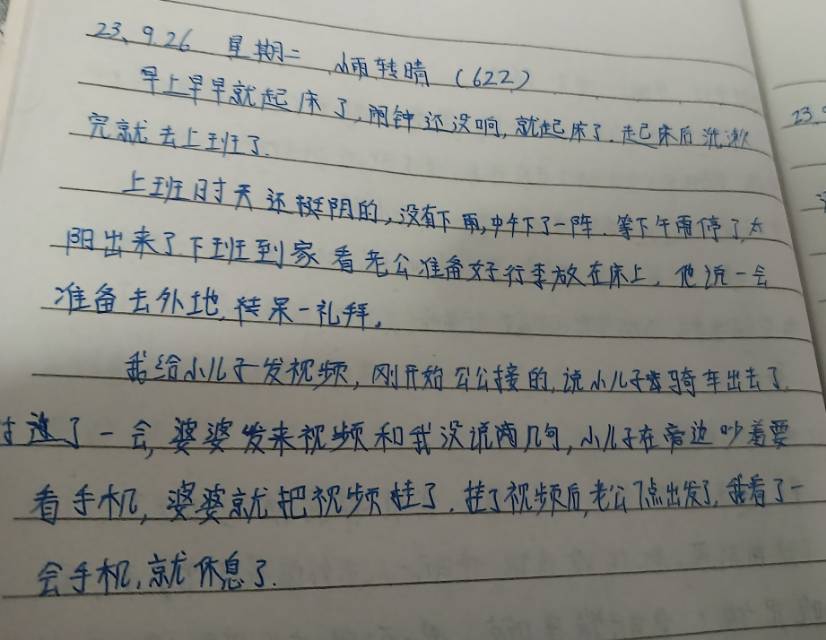 23、9.26 星期二 小雨转晴（622）
早上早早就起床了,闹钟还没响,就起床了.起床后洗漱
完就去上班了.
上班时天还挺阴的,没有下雨,中午下了一阵.等下午雨停了,太
阳出来了.下班到家看老公准备好行李放在床上,他说一会
准备去外地,待呆一礼拜,
我给小儿子发视频,刚开始公公接的,说小儿子骑车出去了.
过了一会,婆婆发来视频和我没说两几句,小儿子在旁边吵着要
看手机,婆婆就把视频挂了.挂了视频后,老公7点出发了,我看了一
会手机,就休息了.
23、9